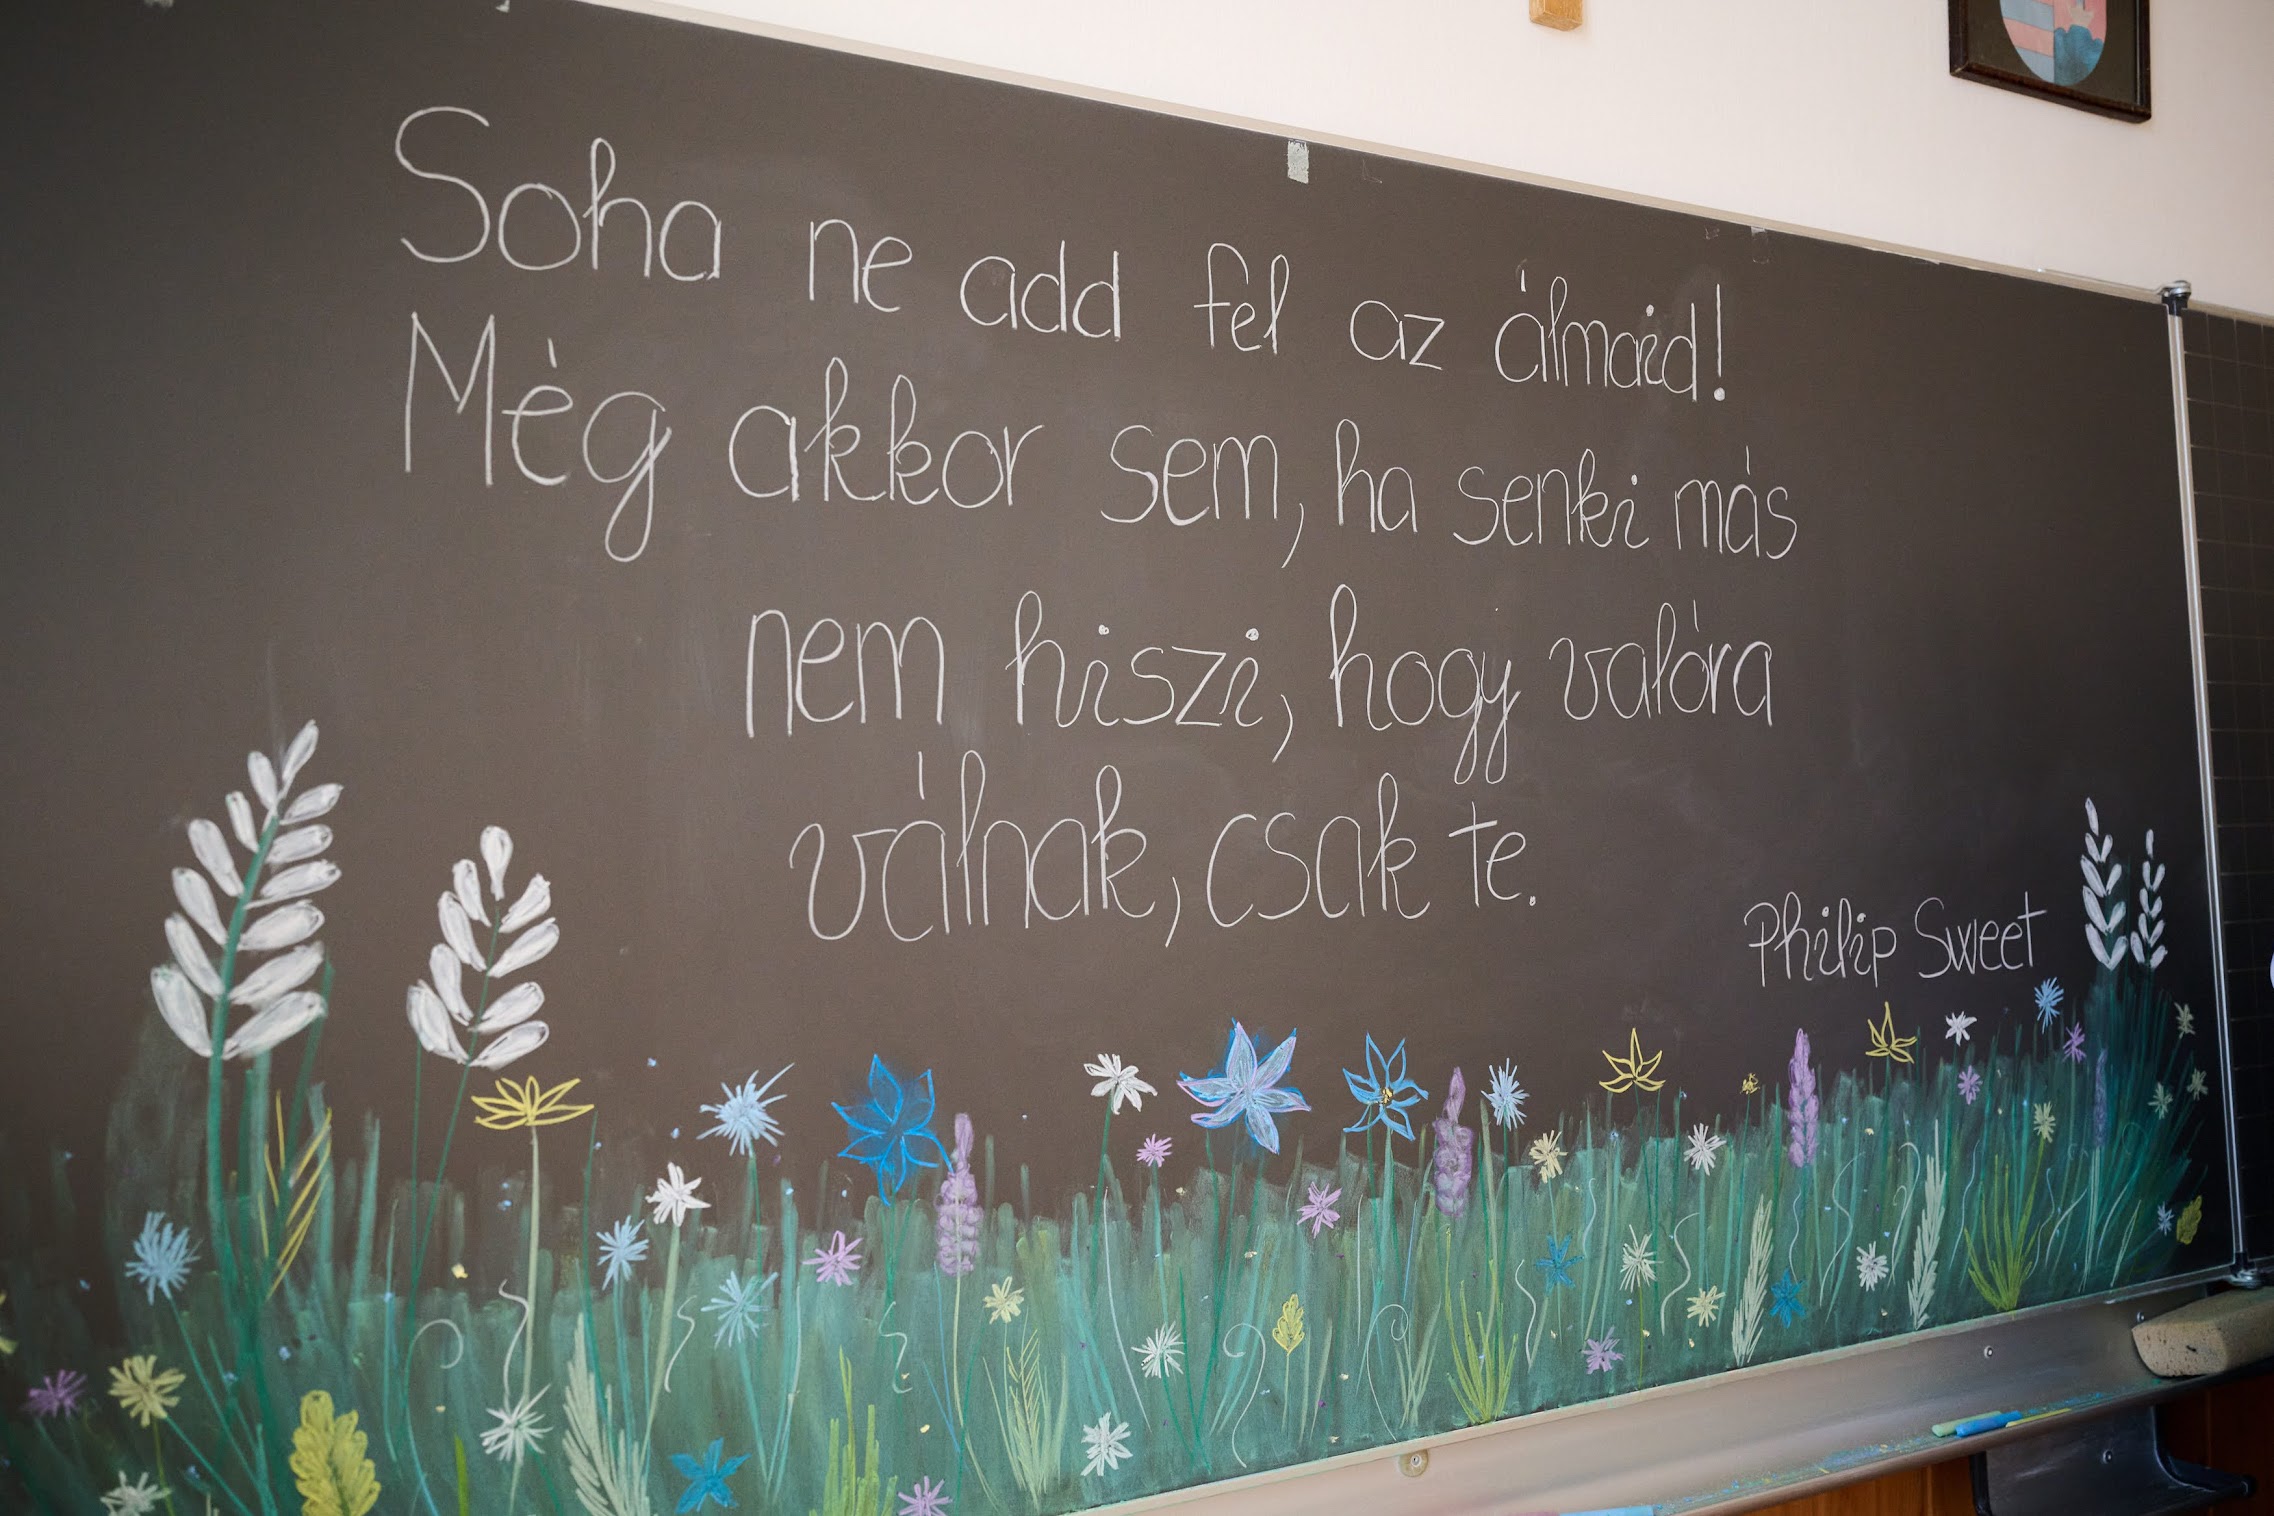 Soha ne add fel az álmaid!
Még akkor sem, ha senki más
nem hiszi, hogy valóra
válnak, csak te.
Philip Sweet